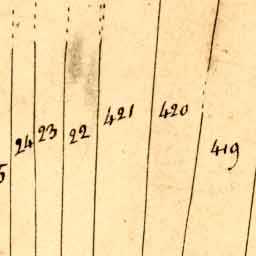 24 23 22 421 420 419